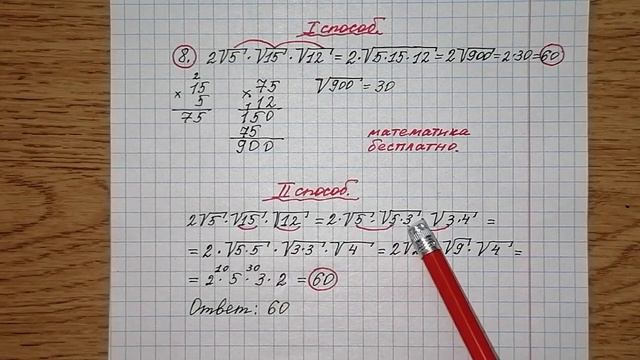 I способ.
8. 2√5 · √15 · √12 = 2 · √5·15·12 = 2√900 = 2·30 = 60
2
× 15
5
75
× 75
12
150
75
900
√900 = 30
математика
бесплатно.
II способ.
2√5 · √15 · √12 = 2 · √5 · √5·3 · √3·4 =
= 2 · √5·5 · √3·3 · √4 = 2√2 · √9 · √4 =
10 30
= 2 · 5 · 3 · 2 = 60
Ответ: 60